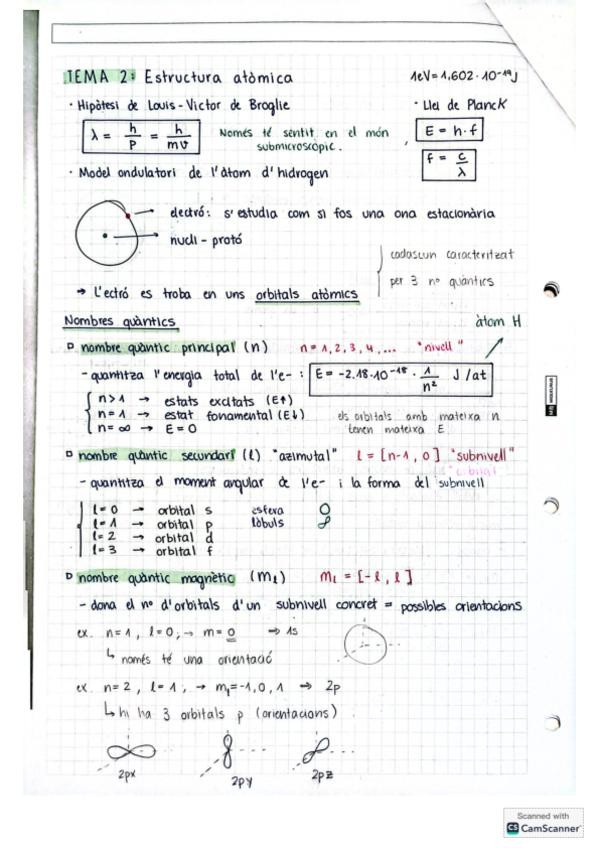 TEMA 2: Estructura atòmica
1eV = 1,602 · 10⁻¹⁹ J
· Hipòtesi de Louis-Victor de Broglie
· Llei de Planck
λ = h/p = h/mv
Només té sentit en el món
submicroscòpic.
E = h·f
f = c/λ
· Model ondulatori de l'àtom d'hidrogen
electró: s'estudia com si fos una ona estacionària
nucli - protó
cadascun caracteritzat
per 3 nº quàntics
→ L'ectró es troba en uns orbitals atòmics
Nombres quàntics
àtom H
nombre quàntic principal (n) n = 1, 2, 3, 4, ... "nivell"
- quantitza l'energia total de l'e- : E = -2.18·10⁻¹⁸ · 1/n² J/at
n>1 → estats excitats (E↑)
n=1 → estat fonamental (E↓)
n=∞ → E=0
els orbitals amb mateixa n
tenen mateixa E
nombre quàntic secundari (l) "azimutal" l = [n-1, 0] "subnivell"
"orbital"
- quantitza el moment angular de l'e- i la forma del subnivell
l=0 → orbital s esfera
l=1 → orbital p lòbuls
l=2 → orbital d
l=3 → orbital f
nombre quàntic magnètic (ml) ml = [-l, l]
- dona el nº d'orbitals d'un subnivell concret = possibles orientacions
ex. n=1, l=0; → m=0 ⇒ 1s
↳ només té una orientació
ex. n=2, l=1, → ml=-1,0,1 ⇒ 2p
↳ hi ha 3 orbitals p (orientacions)
2px
2py
2pz
Scanned with
CS CamScanner